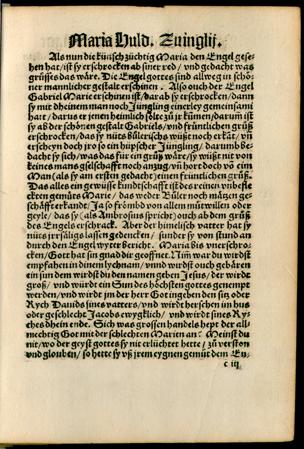 Maria Huld. Zuinglij.
Als nun die künsch züchtig Maria den Engel gese-
hen hat/ ist sy erschrocken ab siner red/ vnd gedacht was
grüsses das wäre. Die Engel gottes sind allweg in schö-
ner mannlicher gestalt erschinen. Also ouch der Engel
Gabriel Marie erschinen ist/ darab sy erschrocken/ dann
sy mit dheinen man noch Jungling einerley gemeinsami
hatt/ darus er jenen heimlich solte zů jr kümen/ darum ist
sy ab der schönen gestalt Gabriels/ vnd früntlichen grůß
erschrocken/ das sy nüts bůlerischs wüßt noch erkāt/ vn̄
erscheyn doch jro so ein hüpscher Jungling/ darumb be-
dacht sy sich/ was das für ein grůß wäre/ sy wüßt nit von
keines mans gselschafft noch anzug/ vn̄ hort doch vō eim
Man (als sy am ersten gedacht) einen früntlichen grůß.
Das alles ein gewüsse kundtschafft ist des reinen vnbefle
ckten gemüts Marie/ das weder Bůler noch mängin ge-
schäfft erkande/ Ja so frömbd von allem můtwillen oder
geyle/ das sy (als Ambrosius spricht) ouch ab dem grůß
des Engels erschrack. Aber der himelsch vatter hat sy
nüts jrrsäligs lassen gedencken/ sunder sy von stund an
durch den Engel wyter bericht. Maria bis vnerschro-
cken/ Gott hat sin gnad dir geoffnet. Nim war du wirdst
empfahen in dinem lychnam/ vnnd wirdst ouch gebären
ein sun dem wirdst du den namen geben Jesus/ der wirde
groß/ vnd würdt ein Sun des höchsten gottes genempt
werden/ vnd wirdt jm der herr Got ingeben den sig oder
Rych Dauids sines vatters/ vnd wirdt herschen im hus
oder geschlecht Jacobs ewygklich/ vnd wirdt sines Ry-
ches dhein ende. Sich was grossen handels hept der all-
mechtig Gott mit der schlechten Marien an? Meinst du
nit/ wo der geyst gottes sy nit erlüchtet hette/ zů verston
vnd glouben/ so hette sy vß jrem eygnen gemüt dem En-
c iij